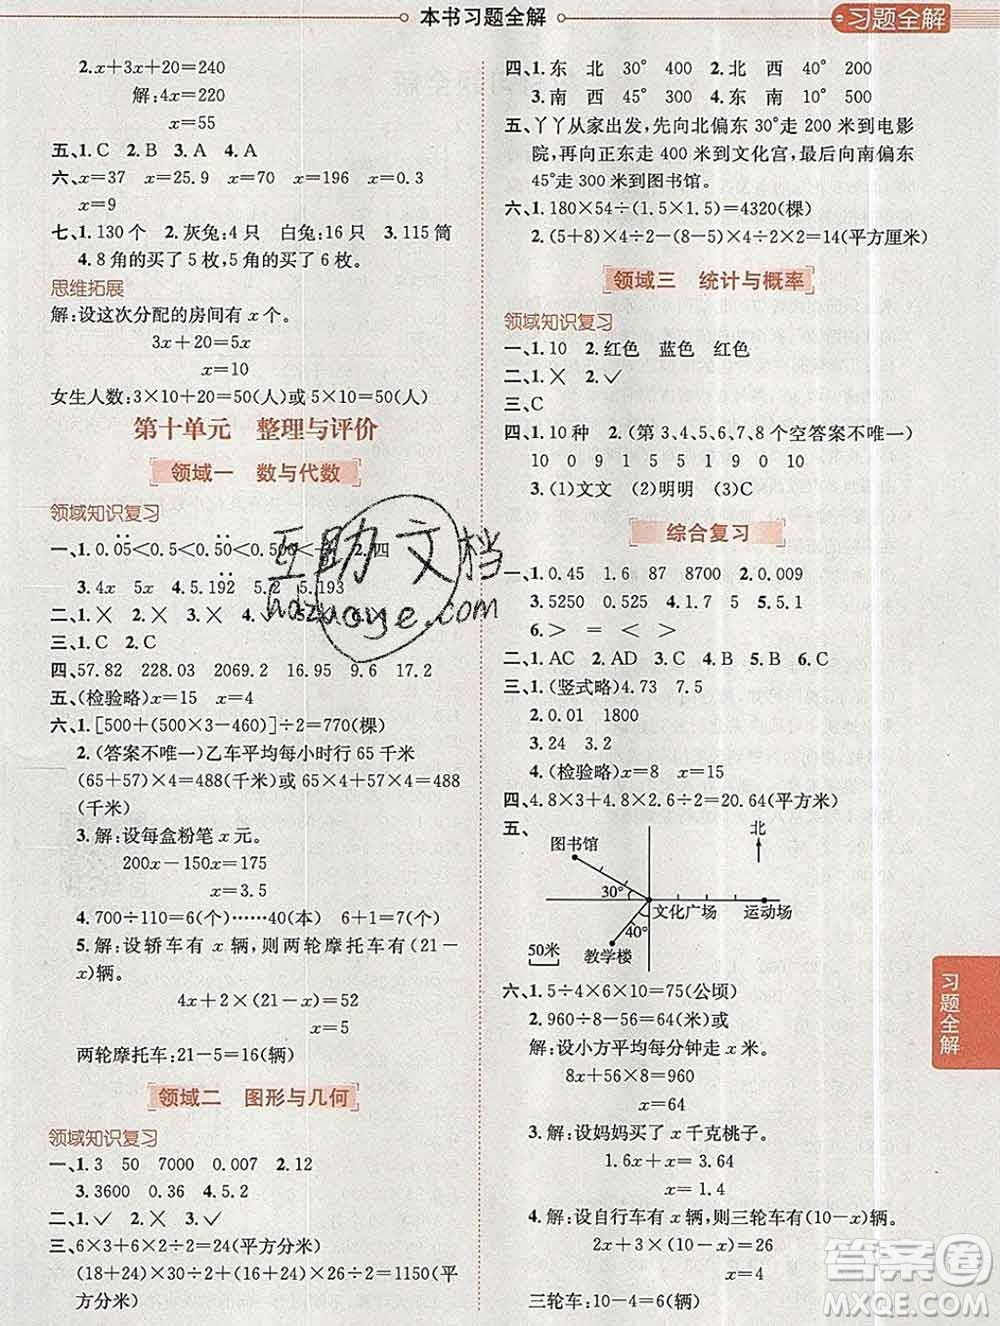 本书习题全解
习题全解
2.x+3x+20=240
解:4x=220
x=55
五、1.C 2.B 3.A 4.A
六、x=37 x=25.9 x=70 x=196 x=0.3
x=9
七、1.130 个 2.灰兔:4 只 白兔:16 只 3.115 筒
4.8 角的买了 5 枚,5 角的买了 6 枚。
思维拓展
解:设这次分配的房间有 x 个。
3x+20=5x
x=10
女生人数:3×10+20=50(人)或 5×10=50(人)
第十单元 整理与评价
领域一 数与代数
领域知识复习
3.4x 5x 4.5.192 5.2 5.193
三、1.C 2.C
四、57.82 228.03 2069.2 16.95 9.6 17.2
五、(检验略)x=15 x=4
六、1.[500+(500×3-460)]÷2=770(棵)
2.(答案不唯一)乙车平均每小时行 65 千米
(65+57)×4=488(千米)或 65×4+57×4=488
(千米)
3.解:设每盒粉笔 x 元。
200x-150x=175
x=3.5
4.700÷110=6(个)……40(本) 6+1=7(个)
5.解:设轿车有 x 辆,则两轮摩托车有(21-
x)辆。
4x+2×(21-x)=52
x=5
两轮摩托车:21-5=16(辆)
领域二 图形与几何
领域知识复习
一、1.3 50 7000 0.007 2.12
3.3600 0.36 4.5.2
二、1.✓ 2.✕ 3.✓
三、6×3+6×2÷2=24(平方分米)
(18+24)×30-(18+24)×10÷2=1150(平
方分米)
四、1.东 北 30° 400 2.北 西 40° 200
3.南 西 45° 300 4.南 东 50° 500
五、丫丫从家出发,先向北偏东 30°走 200 米到电影
院,再向正东走 400 米到文化宫,最后向南偏东
45°走 300 米到图书馆。
六、1.180×54÷(1.5×1.5)=4320(棵)
2.(5+8)×4÷2-(8-5)×4÷2×2=14(平方厘米)
领域三 统计与概率
领域知识复习
一、1.10 2.红色 蓝色 红色
二、1.✕ 2.✓
三、C
四、1.10 种 2.(第 3、4、5、6、7、8 个空答案不唯一)
10 0 9 1 8 2 7 3 6 4
3.(1)文文 (2)明明 (3)C
综合复习
一、1.0.45 1.6 87 8700 2.0.009
3.5250 0.525 4.1.7 5 5.5.1
6.> = < >
二、1.AC 2.AD 3.C 4.B 5.B 6.C
三、1.(竖式略)4.73 7.5
2.0.01 1800
3.24 3.2
4.(检验略)x=8 x=15
四、4.8×3+4.8×2.6÷2=20.64(平方米)
五、
北
图书馆
30°
文化广场 运动场
40°
50米 教学楼
六、1.5÷4×6×10=75(公顷)
2.960÷8-56=64(米)或
解:设小方平均每分钟走 x 米。
8x+56×8=960
x=64
3.解:设妈妈买了 x 千克桃子。
1.6x+x=3.64
x=1.4
4.解:设自行车有 x 辆,则三轮车有(10-x)辆。
2x+3×(10-x)=26
x=4
三轮车:10-4=6(辆)
习题全解
互助文档
hdzuoye.com
答案圈
MXQE.COM